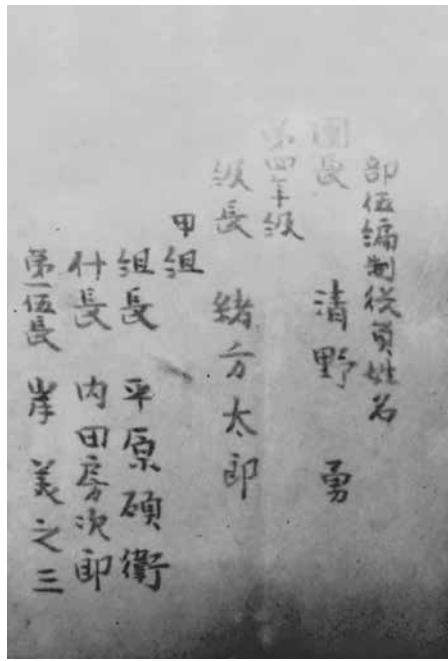 部伍編制役員姓名
團長 清野 勇
第四年級
級長 緒方太郎
甲組
組長 平原碩衛
什長 内田房次郎
第一伍長 岸 美之三